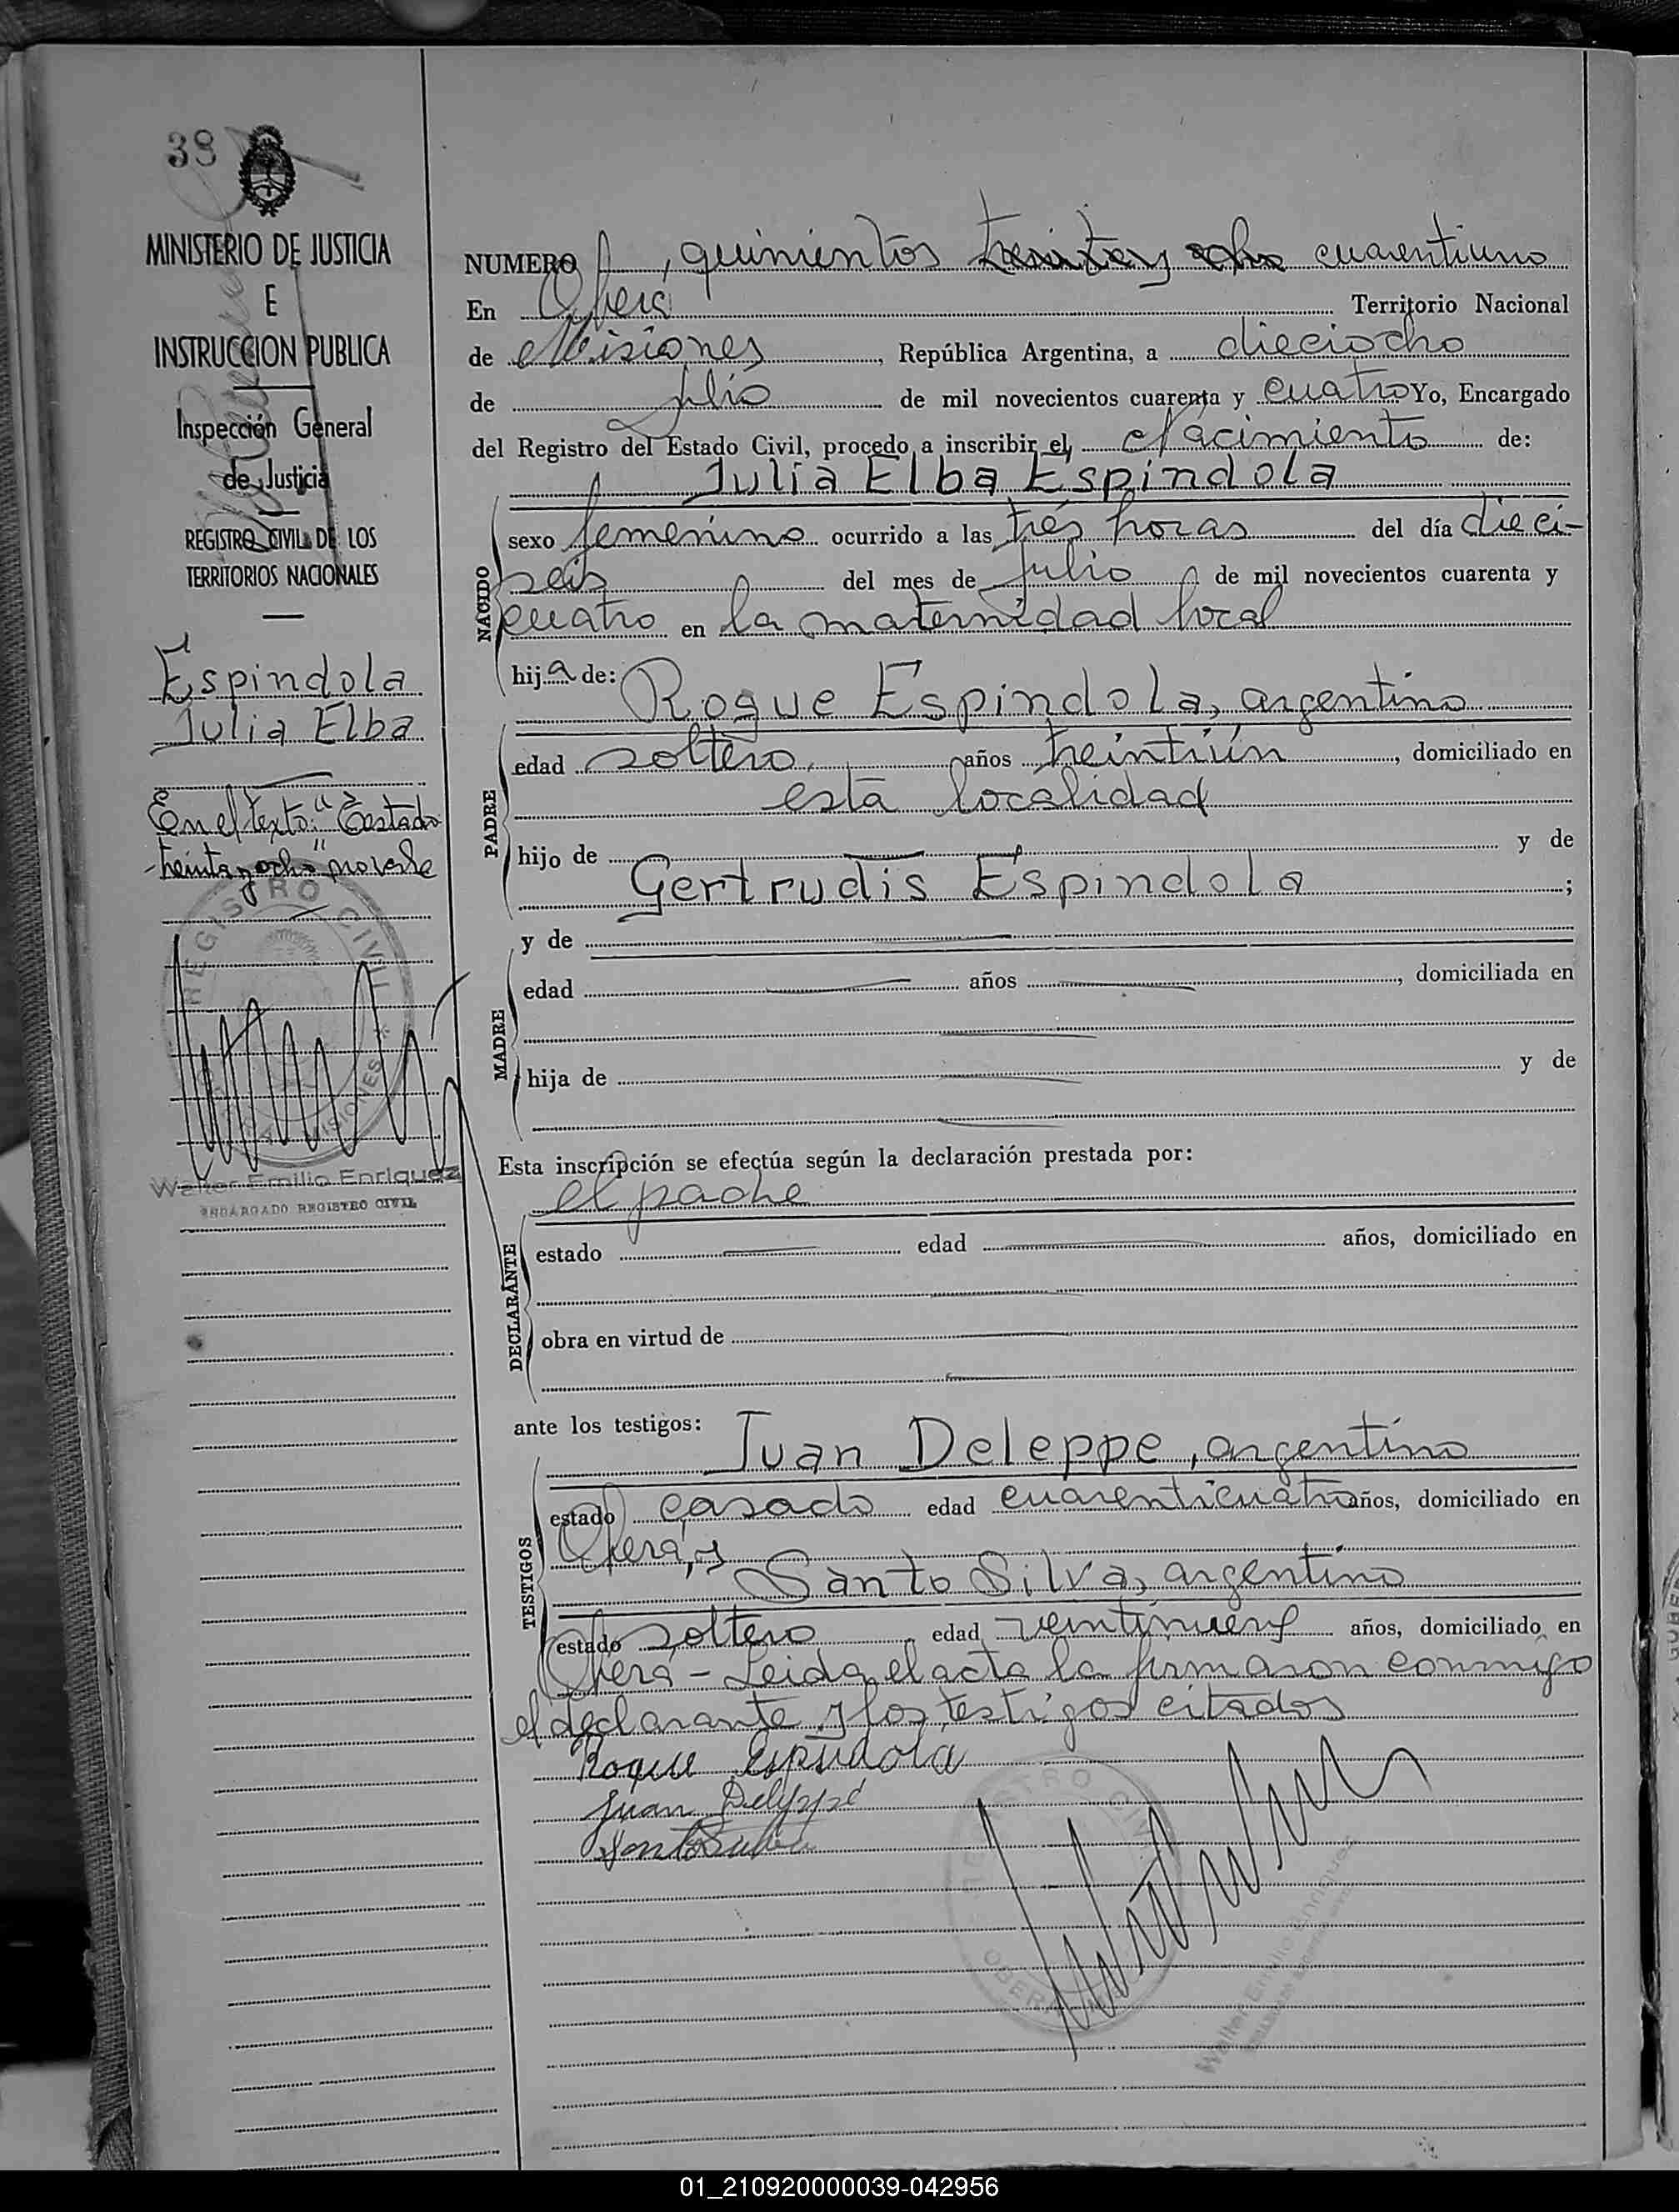 38
MINISTERIO DE JUSTICIA
E
INSTRUCCION PUBLICA
Inspección General
de Justicia
REGISTRO CIVIL DE LOS
TERRITORIOS NACIONALES
Espindola
Julia Elba
En el texto: "Testado
treinta y ocho" no vale
REGISTRO CIVIL
MISIONES
Walter Emilio Enriquez
ENCARGADO REGISTRO CIVIL
NUMERO, quinientos treinta y ocho cuarentiuno
En Oberá Territorio Nacional
de Misiones, República Argentina, a dieciocho
de julio de mil novecientos cuarenta y cuatro Yo, Encargado
del Registro del Estado Civil, procedo a inscribir el, Nacimiento de:
Julia Elba Espindola
NACIDO
sexo femenino ocurrido a las tres horas del día dieci-
seis del mes de julio de mil novecientos cuarenta y
cuatro en la maternidad local
hija de: Roque Espindola, argentino
PADRE
edad soltero, años treintiún, domiciliado en
esta localidad
hijo de y de
Gertrudis Espindola;
y de
MADRE
edad años, domiciliada en
hija de y de
Esta inscripción se efectúa según la declaración prestada por:
el padre
DECLARANTE
estado edad años, domiciliado en
obra en virtud de
ante los testigos: Juan Deleppe, argentino
TESTIGOS
estado casado edad cuarenticuatro años, domiciliado en
Oberá, y
Santo Silva, argentino
estado soltero edad veintinueve años, domiciliado en
Oberá - Leida el acta la firmaron conmigo
el declarante y los testigos citados
Roque Espindola
Juan Deleppe
Santo Silva
REGISTRO CIVIL
OBERA
Walter Emilio Enriquez
01_210920000039-042956